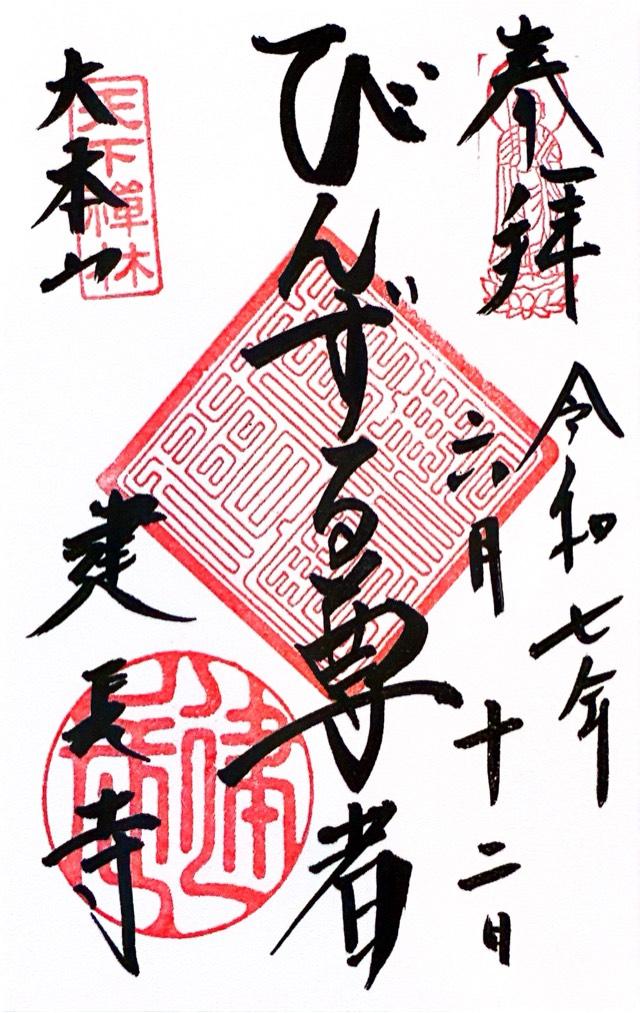 奉拝
令和七年
六月十二日
びんずる尊者
大本山
天下禅林
建長寺